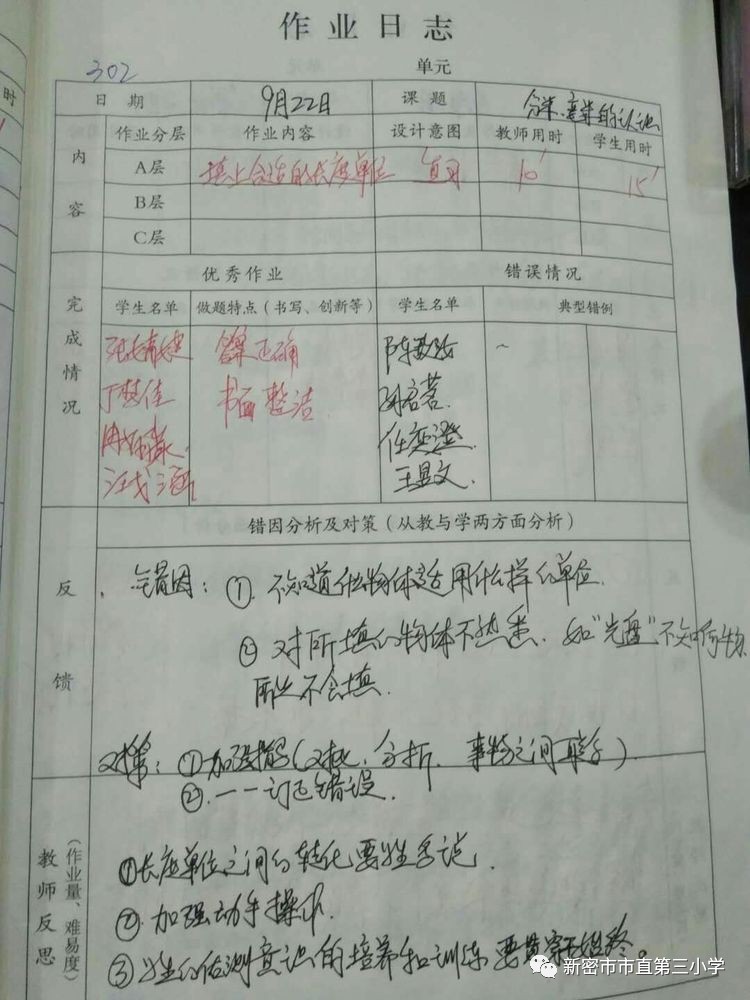 作业日志
302
单元
日 期 9月22日 课 题 分米、毫米的认识
时
内容
作业分层 作业内容 设计意图 教师用时 学生用时
A层 填上合适的长度单位 复习 10′ 15′
B层
C层
完成情况
优秀作业 错误情况
学生名单 做题特点（书写、创新等） 学生名单 典型错例
答案正确
丁梦佳 书面整洁
王昱文
错因分析及对策（从教与学两方面分析）
反馈
错因：① 不知道什么物体适用什么样的单位.
② 对所填的物体不熟悉. 如"光盘"不知何物
所以不会填.
对策：①加强指导(对比、分析、事物之间联系).
②.一一订正错误.
教师反思
（作业量、难易度）
①长度单位之间的转化要让学生多说.
②.加强动手操作.
③学生的估测意识的培养和训练要贯穿于始终。
新密市市直第三小学